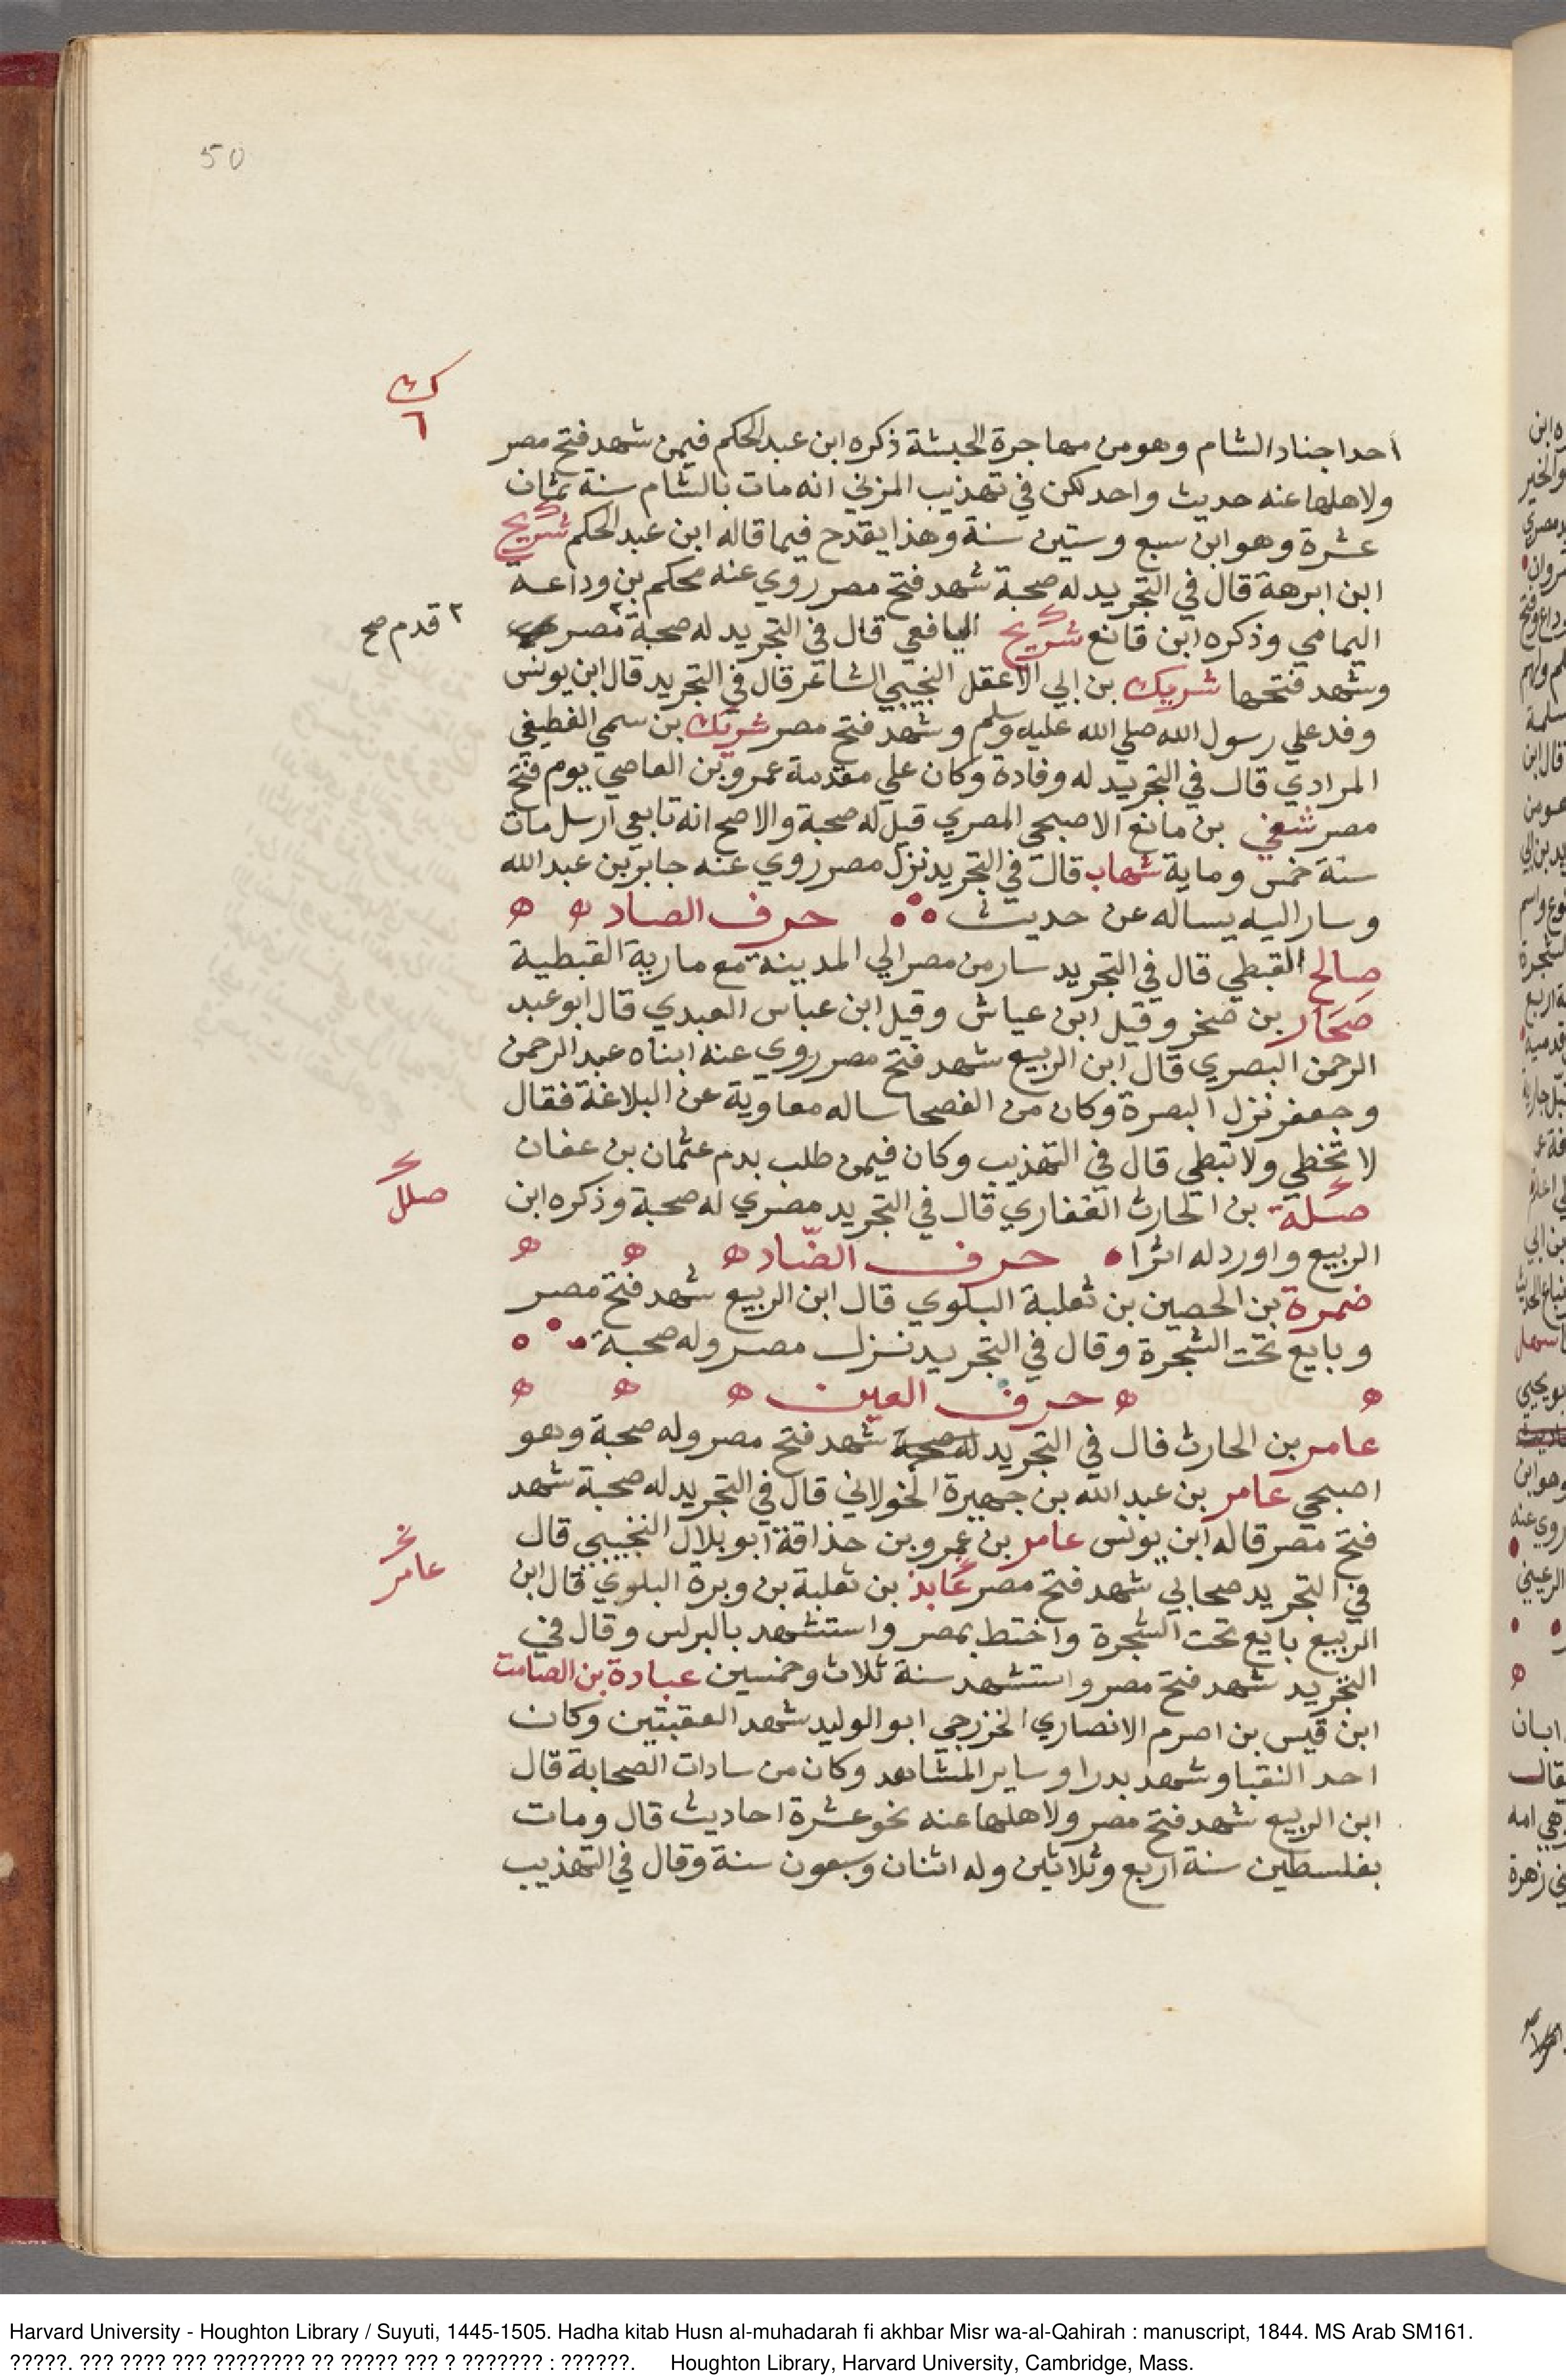 50
ك
٦
احد اجناد الشام وهو من مهاجرة الحبشة ذكره ابن عبد الحكم فيمن شهد فتح مصر
ولاهلها عنه حديث واحد لكن في تهذيب المزني انه مات بالشام سنة ثمان
عشرة وهو ابن سبع وستين سنة وهذا يقدح فيما قاله ابن عبد الحكم شريح
ابن ابرهة قال في التجريد له صحبة شهد فتح مصر روي عنه محكم بن وداعة
اليمامي وذكره ابن قانع شريح اليافعي قال في التجريد له صحبة مصر
٢ قدم صح
وشهد فتحها شريك بن ابي الاعقل النجيبي الشاعر قال في التجريد قال ابن يونس
وفد علي رسول الله صلي الله عليه وسلم وشهد فتح مصر شريك بن سمي الغطيفي
المرادي قال في التجريد له وفادة وكان علي مقدمة عمرو بن العاصي يوم فتح
مصر شفي بن مانع الاصبحي المصري قيل له صحبة والاصح انه تابعي ارسل مات
سنة خمس وماية شهاب قال في التجريد نزل مصر روي عنه جابر بن عبد الله
وسار اليه يساله عن حديث حرف الصاد ه ه
صالح القبطي قال في التجريد سار من مصر الي المدينة مع مارية القبطية
صحار بن صخر وقيل ابن عياش وقيل ابن عباس العبدي قال ابو عبد
الرحمن البصري قال ابن الربيع شهد فتح مصر روي عنه ابناه عبد الرحمن
وجعفر نزل البصرة وكان من الفصحا ساله معاوية عن البلاغة فقال
لا تخطي ولا تبطي قال في التهذيب وكان فيمن طلب بدم عثمان بن عفان
صلة بن الحارث الغفاري قال في التجريد مصري له صحبة وذكره ابن
صلل
الربيع واورد له اثرا حرف الضّاد ه ه ه
ضمرة بن الحصين بن ثعلبة البلوي قال ابن الربيع شهد فتح مصر
وبايع تحت الشجرة وقال في التجريد نزل مصر وله صحبة
ه ه حرف العين ه ه ه
عامر بن الحارث قال في التجريد له صحبة شهد فتح مصر وله صحبة وهو
اصبحي عامر بن عبد الله بن جهيرة الخولاني قال في التجريد له صحبة شهد
فتح مصر قاله ابن يونس عامر بن عمرو بن حذاقة ابو بلال النخيبي قال
عامر
في التجريد صحابي شهد فتح مصر عَابذ بن ثعلبة بن وبرة البلوي قال ابن
الربيع بايع تحت الشجرة واختط بمصر واستشهد بالبرلس وقال في
التخريد شهد فتح مصر واستشهد سنة ثلاث وخمسين عبادة بن الصامت
ابن قيس بن اصرم الانصاري الخزرجي ابو الوليد شهد العقبتين وكان
احد النقبا وشهد بدرا وساير المشاهد وكان من سادات الصحابة قال
ابن الربيع شهد فتح مصر ولاهلها عنه نحو عشرة احاديث قال ومات
بفلسطين سنة اربع وثلاثين وله اثنان وسبعون سنة وقال في التهذيب
Harvard University - Houghton Library / Suyuti, 1445-1505. Hadha kitab Husn al-muhadarah fi akhbar Misr wa-al-Qahirah : manuscript, 1844. MS Arab SM161.
?????. ??? ???? ??? ???????? ?? ????? ??? ? ??????? : ??????. Houghton Library, Harvard University, Cambridge, Mass.